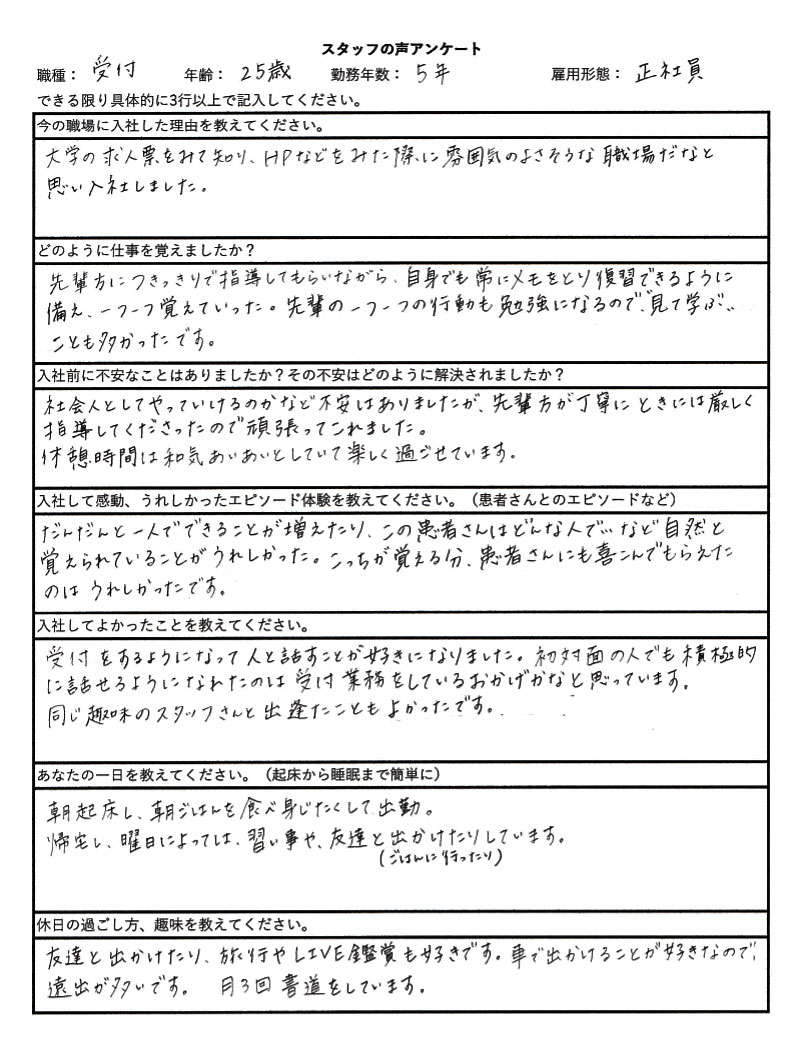 スタッフの声アンケート
職種： 受付 年齢： 25歳 勤務年数： 5年 雇用形態： 正社員
できる限り具体的に3行以上で記入してください。
今の職場に入社した理由を教えてください。
大学の求人票をみて知り、HPなどをみた際に雰囲気のよさそうな職場だなと
思い入社しました。
どのように仕事を覚えましたか？
先輩方につきっきりで指導してもらいながら、自身でも常にメモをとり復習できるように
備え、一つ一つ覚えていった。先輩の一つ一つの行動も勉強になるので、見て学ぶ
ことも多かったです。
入社前に不安なことはありましたか？その不安はどのように解決されましたか？
社会人としてやっていけるのかなど不安はありましたが、先輩方が丁寧にときには厳しく
指導してくださったので頑張ってこれました。
休憩時間は和気あいあいとしていて楽しく過ごせています。
入社して感動、うれしかったエピソード体験を教えてください。（患者さんとのエピソードなど）
だんだんと一人でできることが増えたり、この患者さんはどんな人で…など自然と
覚えられていることがうれしかった。こっちが覚える分、患者さんにも喜こんでもらえた
のはうれしかったです。
入社してよかったことを教えてください。
受付をするようになって人と話すことが好きになりました。初対面の人でも積極的
に話せるようになれたのは受付業務をしているおかげかなと思っています。
同じ趣味のスタッフさんと出逢たこともよかったです。
あなたの一日を教えてください。（起床から睡眠まで簡単に）
朝起床し、朝ごはんを食べ身じたくして出勤。
帰宅し、曜日によっては、習い事や、友達と出かけたりしています。
（ごはんに行ったり）
休日の過ごし方、趣味を教えてください。
友達と出かけたり、旅行やLIVE鑑賞も好きです。車で出かけることが好きなので、
遠出が多いです。 月3回書道をしています。